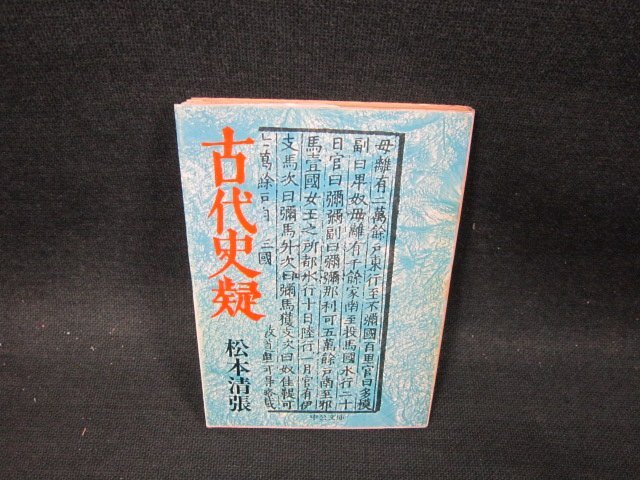 古代史疑
松本清張
母離有二萬餘戸東行至不彌國百里官曰多模
副曰卑奴母離有千餘家南至投馬國水行二十
日官曰彌彌副曰彌彌那利可五萬餘戸南至邪
馬壹國女王之所都水行十日陸行一月官有伊
支馬次曰彌馬升次曰彌馬獲支次曰奴佳鞮可
七萬餘戸
三國
中公文庫